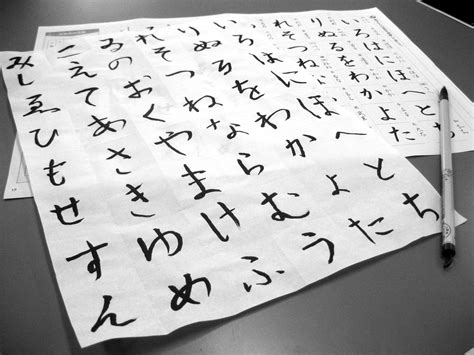 いろはにほへとち
りぬるをわかよた
れそつねな
いろはにほへとち
りぬるをわかよた
れそつねならむう
ゐのおくやまけふ
こえてあさきゆめ
みしゑひもせすん